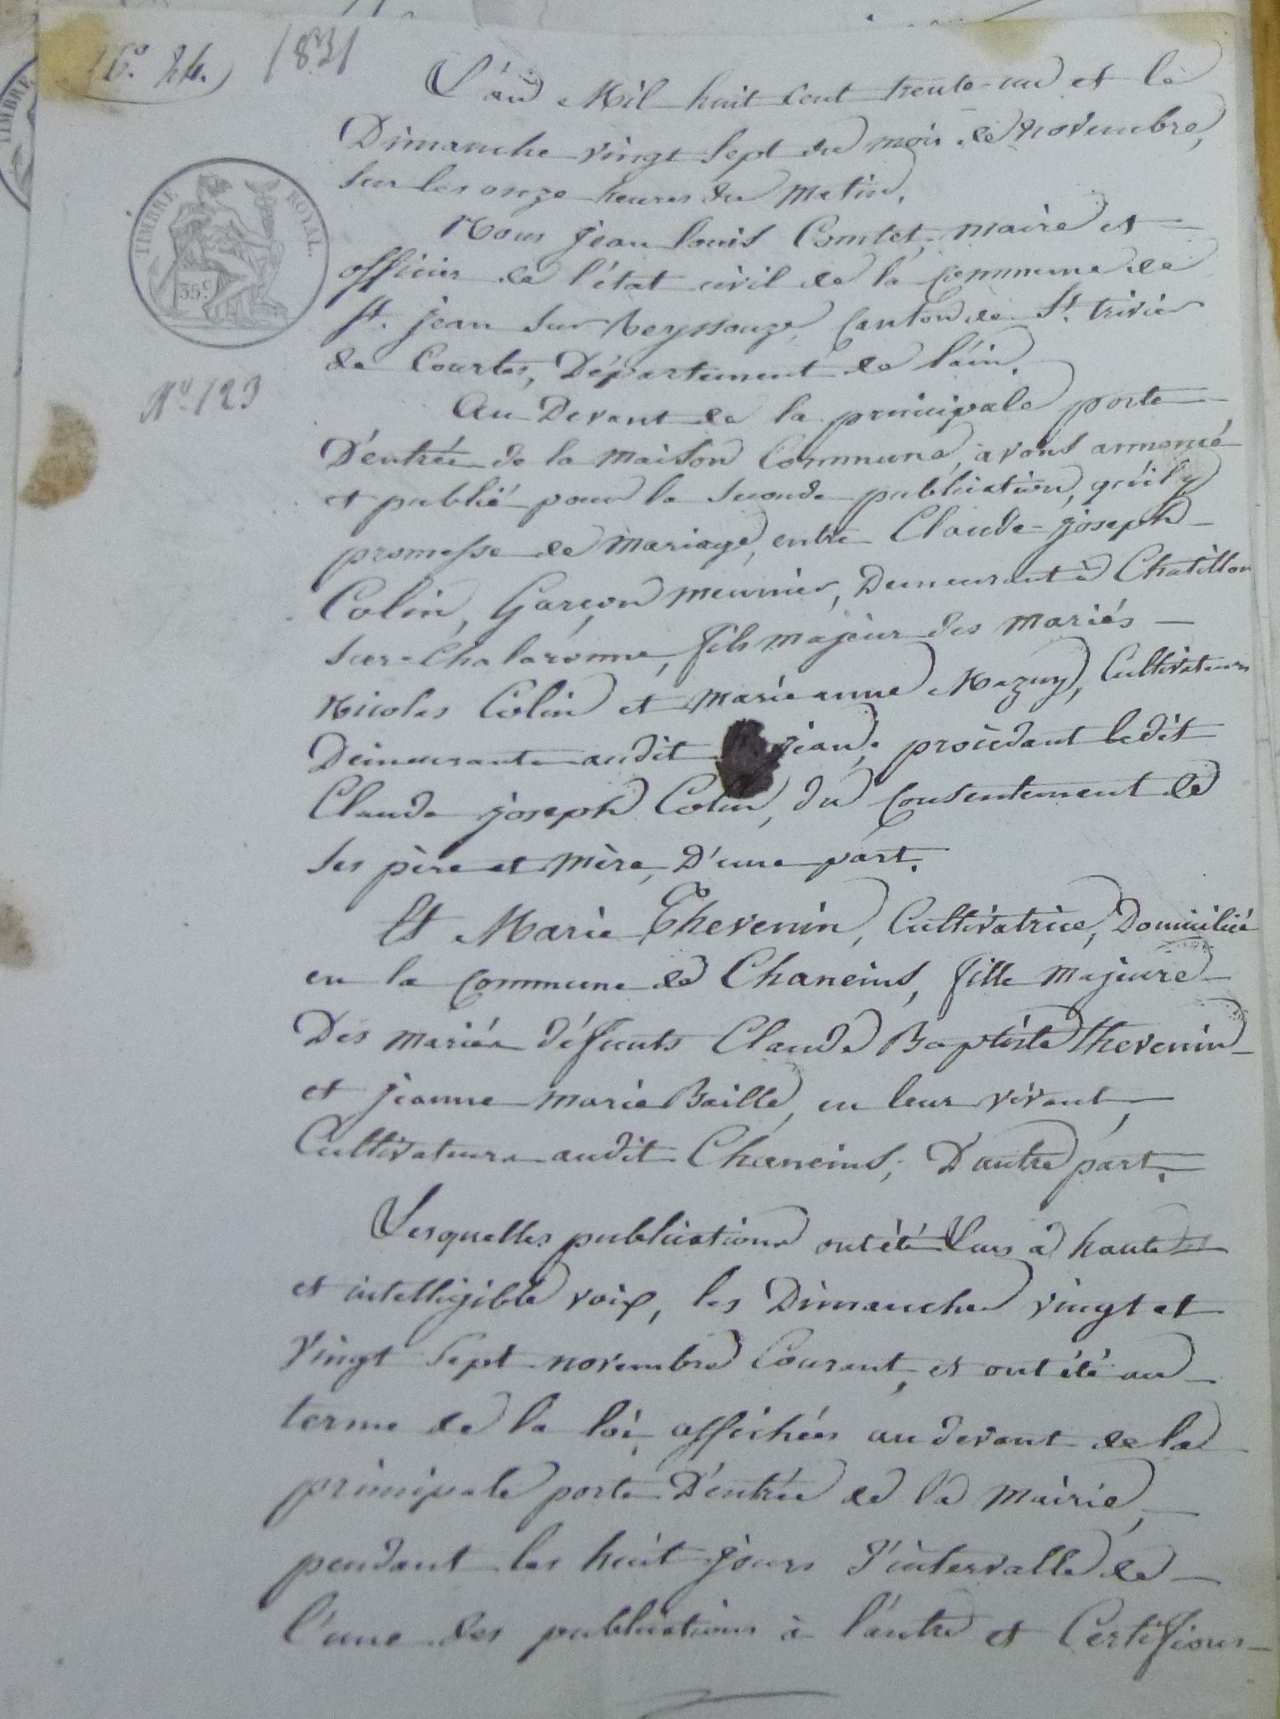 1831
TIMBRE ROYAL
35 c.
N° 123
L'an Mil huit cent trente-un et le
Dimanche vingt Sept du mois de novembre,
Sur les onze heures du Matin.
Nous jean louis Comtet, maire et
officier de l'état civil de la Commune de
St. jean Sur Reyssouze, Canton de St. trivier
de Courtes, Département de l'ain.
Au Devant de la principale porte
D'entrée de la maison Commune, avons annoncé
et publié pour la Seconde publication, qu'il y
promesse de Mariage, entre Claude-joseph
Colin, Garçon meunier, Demeurant à Chatillon
Sur-Chalaronne, fils majeur des mariés
Nicolas Colin et marie anne Mazuy, Cultivateurs
Demeurants audit jean, procédant ledit
Claude joseph Colin, du Consentement de
Ses père et mère, D'une part.
Et Marie Thevenin, Cultivatrice, Domiciliée
en la Commune de Chaneins, fille majeure
Des mariés défunts Claude Baptiste thevenin
et jeanne marie Baille, en leur vivant,
Cultivateurs audit Chaneins, D'autre part.
Lesquelles publications ont été lues à haute
et intelligible voix, les Dimanches vingt et
vingt Sept novembre Courant, et ont été au
terme de la loi, affichées au devant de la
principale porte D'entrée de la Mairie,
pendant les huit jours d'intervalle de
l'une des publications à l'autre et Certifions